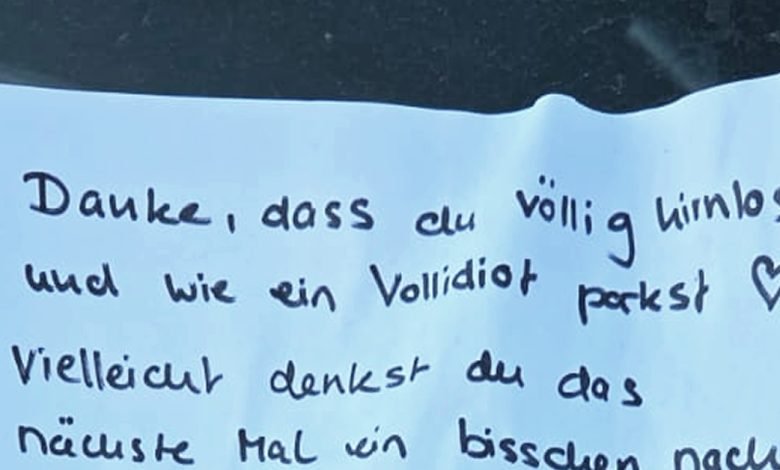 Danke, dass du völlig hirnlos
und wie ein Vollidiot parkst ♡
Vielleicht denkst du das
nächste Mal ein bisschen nach